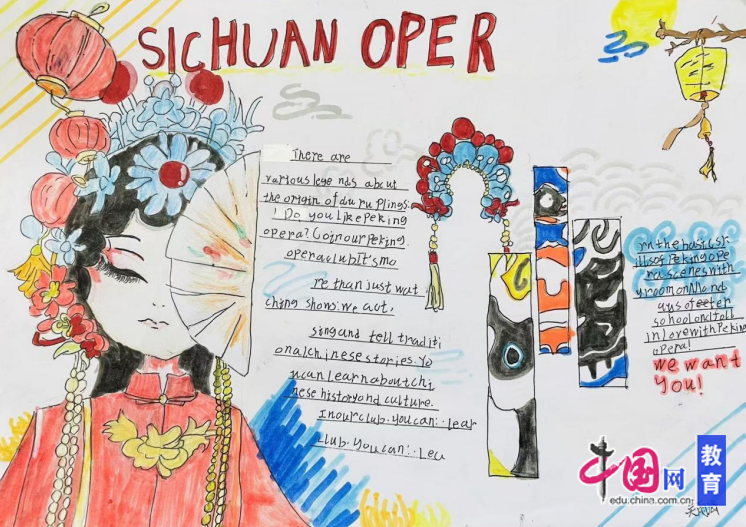 SICHUAN OPER
There are
various legends about
the origin of du ru plings.
! Do you like Peking
opera? Goin our Peking.
opera club It's mo
re than just wat
ching shows: we act,
sing and tell traditi
onal chinese stories. Yo
u can learn about chi
nese history and culture.
In our club. you can: lear
club. you can: Leu
rn the basic s
ills of Peking ope
ra scenes with
school and fall
in love with Peking
opera!
we want
you!
中国网
教育
edu.china.com.cn